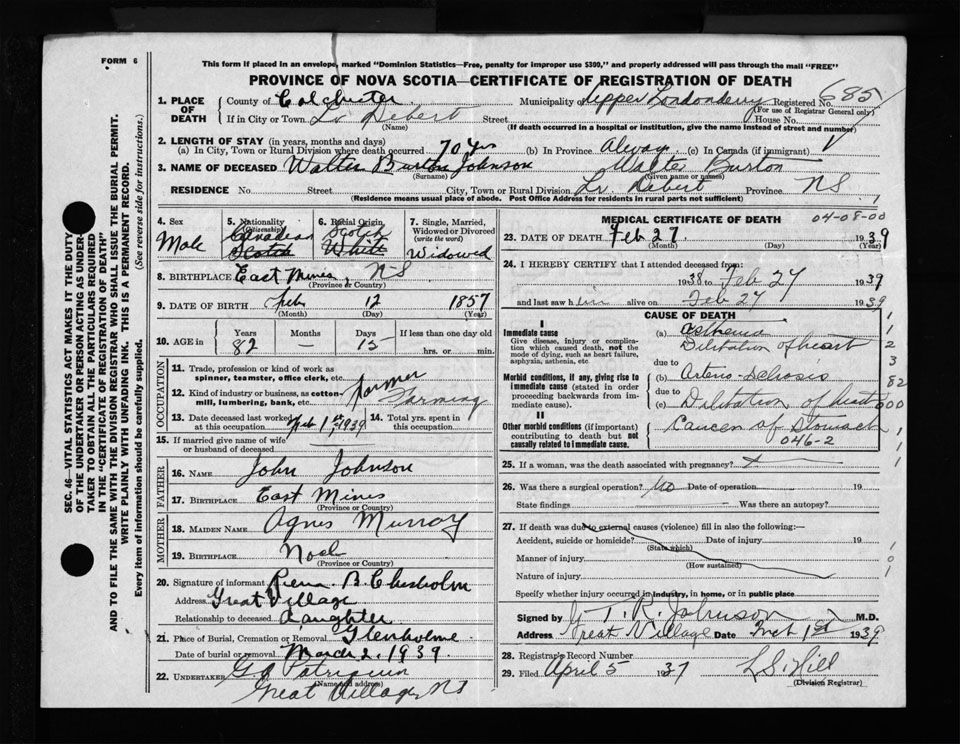 FORM 6
This form if placed in an envelope, marked "Dominion Statistics—Free, penalty for improper use $300," and properly addressed will pass through the mail "FREE"
PROVINCE OF NOVA SCOTIA—CERTIFICATE OF REGISTRATION OF DEATH
SEC. 46—VITAL STATISTICS ACT MAKES IT THE DUTY
OF THE UNDERTAKER OR PERSON ACTING AS UNDER-
TAKER TO OBTAIN ALL THE PARTICULARS REQUIRED
IN THE "CERTIFICATE OF REGISTRATION OF DEATH"
AND TO FILE THE SAME WITH THE DIVISION REGISTRAR WHO SHALL ISSUE THE BURIAL PERMIT.
WRITE PLAINLY WITH UNFADING INK. THIS IS A PERMANENT RECORD.
Every item of information should be carefully supplied. (See reverse side for instructions.)
1. PLACE OF DEATH County of Colchester Municipality of Upper Londonderry Registered No. 685
(For use of Registrar General only)
If in City or Town Lr Debert Street House No.
(Name) (If death occurred in a hospital or institution, give the name instead of street and number)
2. LENGTH OF STAY (in years, months and days)
(a) In City, Town or Rural Division where death occurred 70 yrs (b) In Province Always (c) In Canada (if immigrant)
3. NAME OF DECEASED Walter Burton Johnson Walter Burton
(Surname) (Given name or names)
RESIDENCE No. Street City, Town or Rural Division Lr. Debert Province NS
(Residence means usual place of abode. Post Office Address for residents in rural parts not sufficient)
4. Sex Male
5. Nationality (Citizenship) Canadian Scotch
6. Racial Origin Scotch White
7. Single, Married, Widowed or Divorced (write the word) Widowed
8. BIRTHPLACE East Mines, NS
(Province or Country)
9. DATE OF BIRTH Feb 12 1857
(Month) (Day) (Year)
10. AGE in Years Months Days If less than one day
82 — 15 hrs. or min.
OCCUPATION
11. Trade, profession or kind of work as spinner, teamster, office clerk, etc. Farmer
12. Kind of industry or business, as cotton-mill, lumbering, bank, etc. Farming
13. Date deceased last worked at this occupation Feb 1st, 1939 14. Total yrs. spent in this occupation
15. If married give name of wife or husband of deceased
FATHER
16. NAME John Johnson
17. BIRTHPLACE East Mines
(Province or Country)
MOTHER
18. MAIDEN NAME Agnes Murray
19. BIRTHPLACE Noel
(Province or Country)
20. Signature of informant B. Chisholm
Address Great Village
Relationship to deceased daughter
21. Place of Burial, Cremation or Removal Glenholme
Date of burial or removal March 2, 1939
22. UNDERTAKER G. A. Patriquin
(Name and address)
Great Village, NS
MEDICAL CERTIFICATE OF DEATH 04-08-00
23. DATE OF DEATH Feb 27 1939
(Month) (Day) (Year)
24. I HEREBY CERTIFY that I attended deceased from
1938 to Feb 27 1939
and last saw him alive on Feb 27 1939
CAUSE OF DEATH
I
Immediate cause
Give disease, injury or complication which caused death, not the mode of dying, such as heart failure, asphyxia, asthenia, etc.
(a) Asthenia
Dilitation of heart
due to
Morbid conditions, if any, giving rise to immediate cause (stated in order proceeding backwards from immediate cause).
(b) Arterio-sclrosis
due to
(c) Dilitation of heart
II
Other morbid conditions (if important) contributing to death but not causally related to immediate cause.
Cancer of Stomach
046-2
1
1
2
3
82
00
1
1
1
25. If a woman, was the death associated with pregnancy?
26. Was there a surgical operation? no Date of operation 19
State findings Was there an autopsy?
27. If death was due to external causes (violence) fill in also the following:—
Accident, suicide or homicide? Date of injury 19
(State which)
Manner of injury
(How sustained)
Nature of injury
1
0
1
Specify whether injury occurred in industry, in home, or in public place
Signed by T. R. Johnson M.D.
Address Great Village Date Mch 1st 1939
28. Registrar's Record Number
29. Filed April 5 1937 L. S. Hill
(Division Registrar)